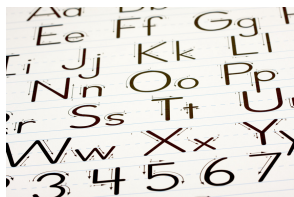 Aa Bb
Ee Ff Gg
i Jj Kk Ll
Nn Oo Pp
r Ss Tt U
Ww Xx Yy
3 4 5 6 7